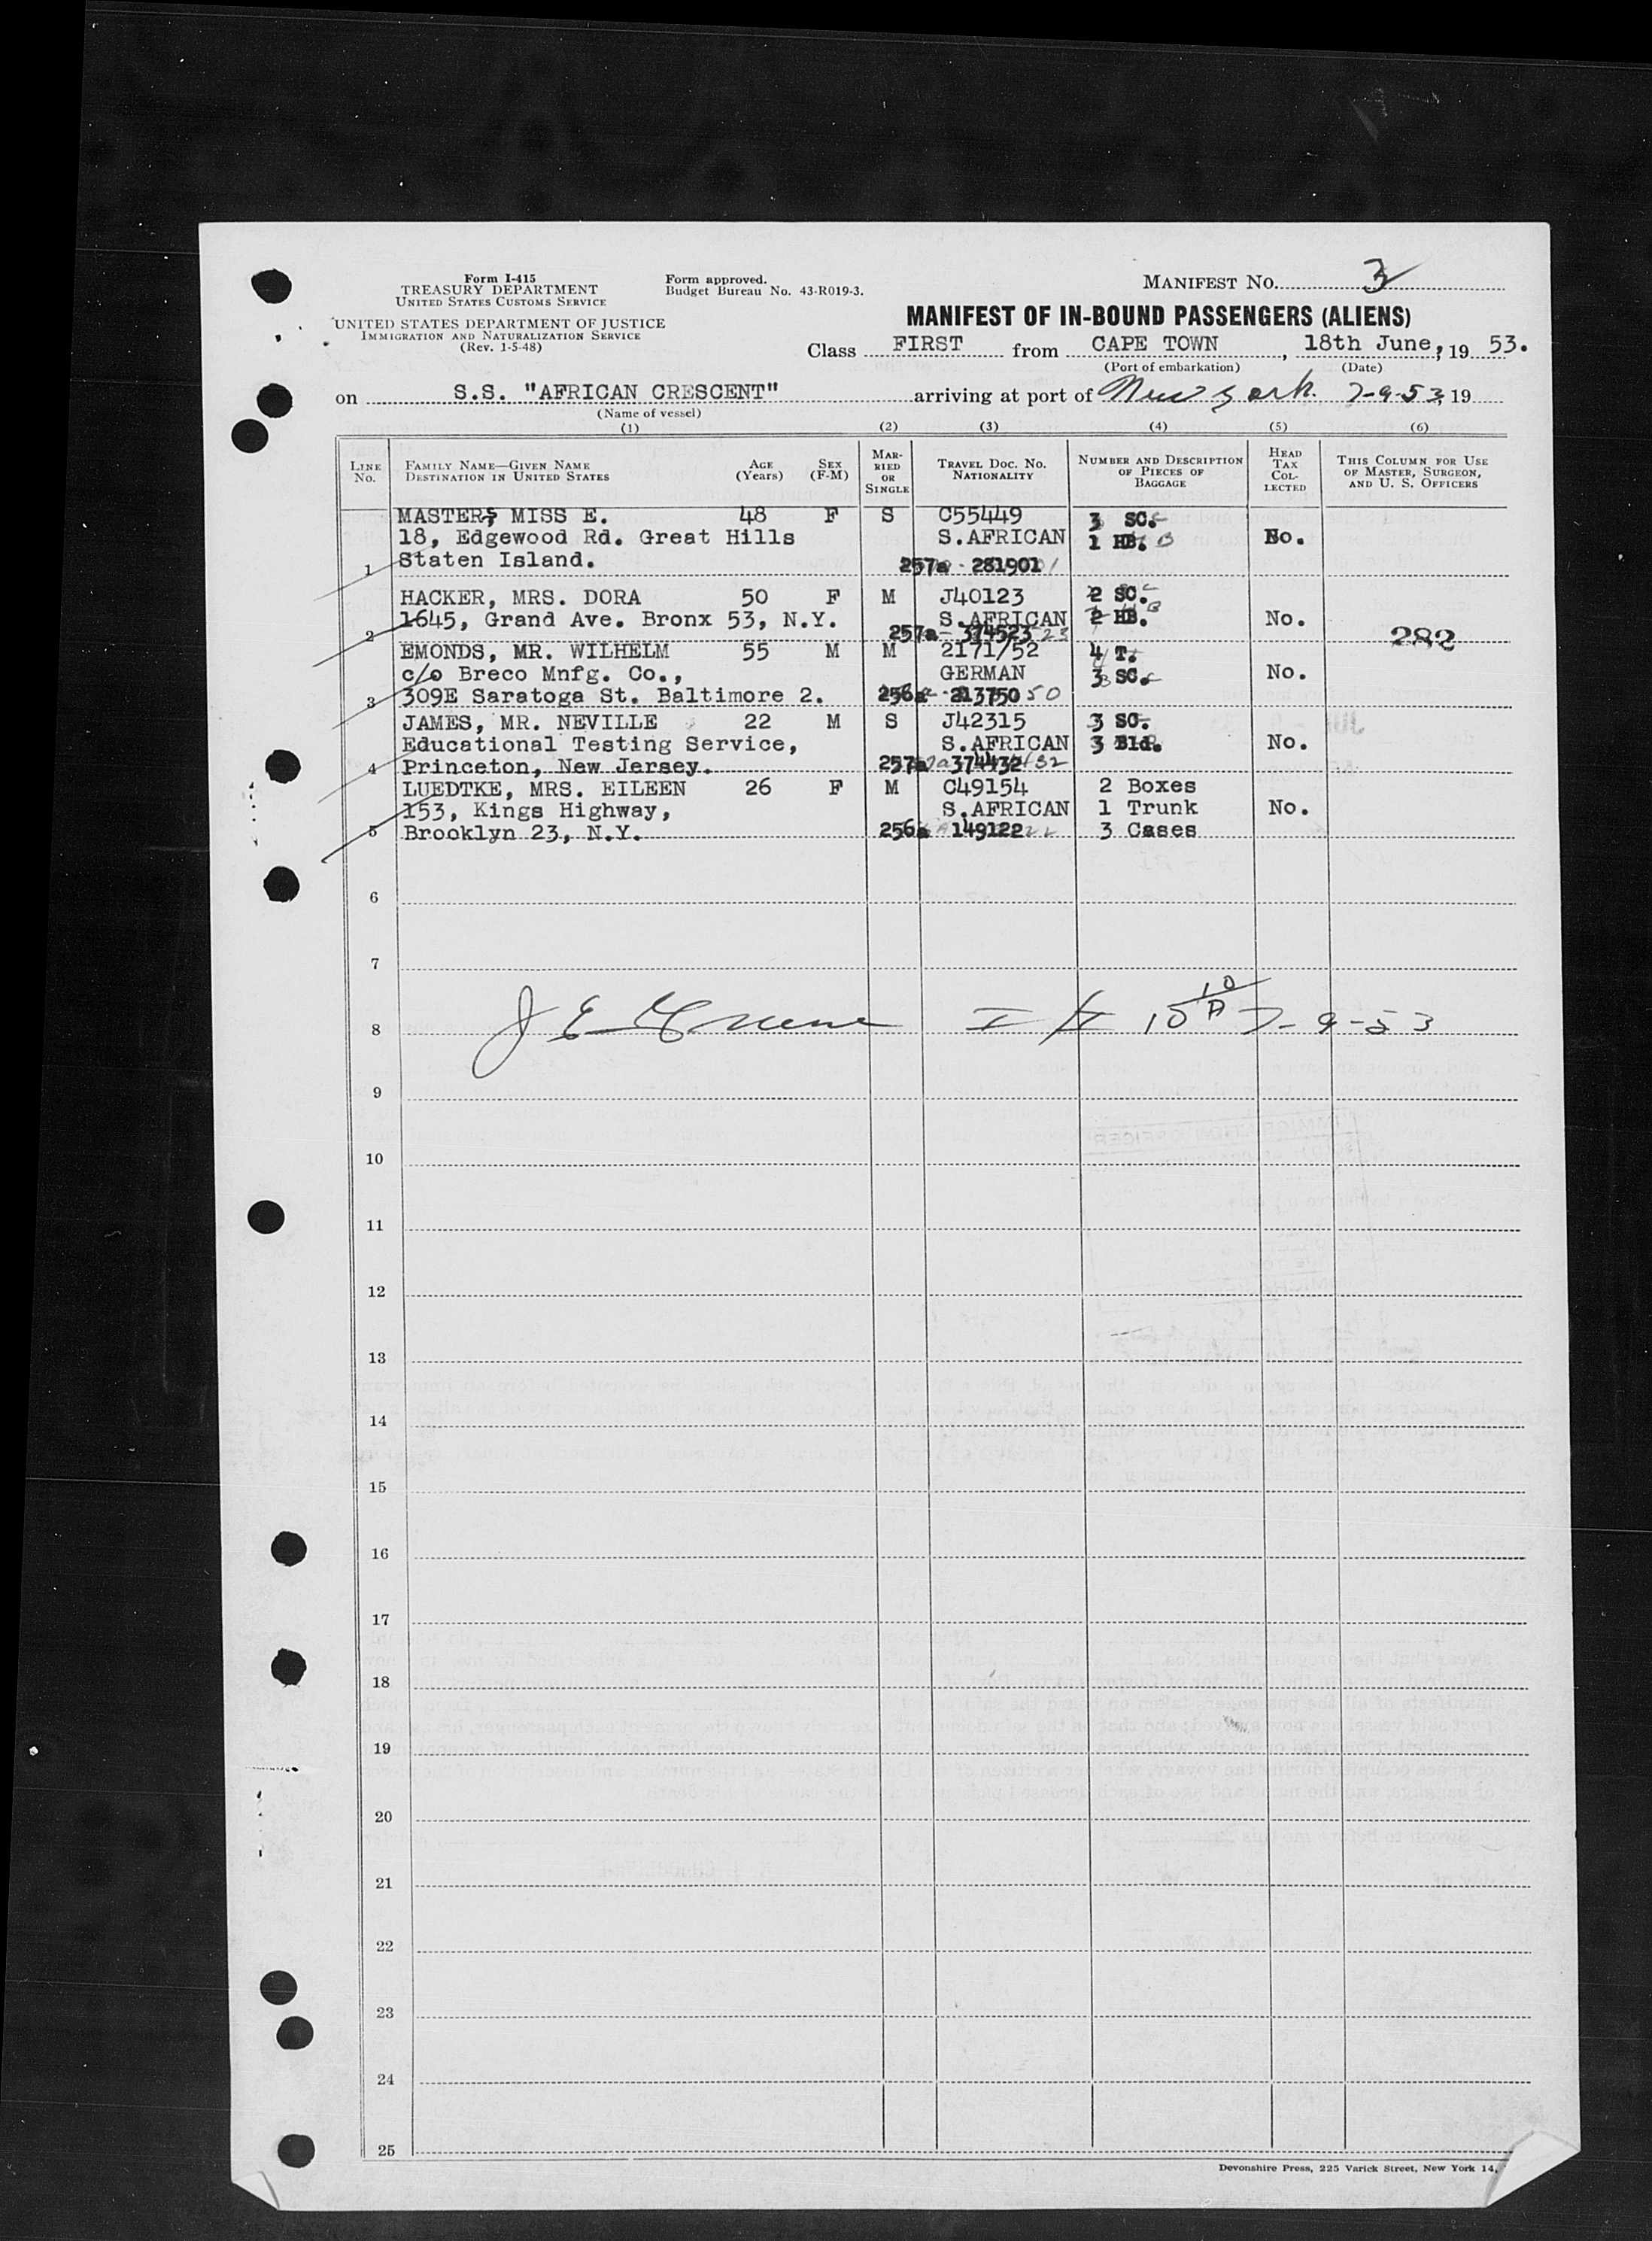 Form I-415
TREASURY DEPARTMENT
UNITED STATES CUSTOMS SERVICE
UNITED STATES DEPARTMENT OF JUSTICE
IMMIGRATION AND NATURALIZATION SERVICE
(Rev. 1-5-48)
Form approved.
Budget Bureau No. 43-R019-3.
MANIFEST NO. 3
MANIFEST OF IN-BOUND PASSENGERS (ALIENS)
Class FIRST from CAPE TOWN, 18th June, 19 53.
(Port of embarkation) (Date)
on S.S. "AFRICAN CRESCENT" arriving at port of New York 7-9-53, 19
(Name of vessel)
(1) (2) (3) (4) (5) (6)
LINE NO. FAMILY NAME—GIVEN NAME DESTINATION IN UNITED STATES AGE (Years) SEX (F-M) MARRIED OR SINGLE TRAVEL DOC. NO. NATIONALITY NUMBER AND DESCRIPTION OF PIECES OF BAGGAGE HEAD TAX COLLECTED THIS COLUMN FOR USE OF MASTER, SURGEON, AND U. S. OFFICERS
MASTERS MISS E. 48 F S C55449 3 SC.
18, Edgewood Rd. Great Hills S.AFRICAN 1 HB. No.
1 Staten Island. 257a - 281901
HACKER, MRS. DORA 50 F M J40123 2 SC.
1645, Grand Ave. Bronx 53, N.Y. S.AFRICAN 2 HB. No.
2 257a - 374523 282
EMONDS, MR. WILHELM 55 M M 2171/52 4 T.
c/o Breco Mnfg. Co., GERMAN 3 SC. No.
3 309E Saratoga St. Baltimore 2. 256a - 213750
JAMES, MR. NEVILLE 22 M S J42315 3 SC.
Educational Testing Service, S.AFRICAN 3 Bld. No.
4 Princeton, New Jersey. 257a 374432
LUEDTKE, MRS. EILEEN 26 F M C49154 2 Boxes
153, Kings Highway, S.AFRICAN 1 Trunk No.
5 Brooklyn 23, N.Y. 256a 149122 3 Cases
6
7
8 J E Greene 7-9-53
9
10
11
12
13
14
15
16
17
18
19
20
21
22
23
24
25
Devonshire Press, 225 Varick Street, New York 14,